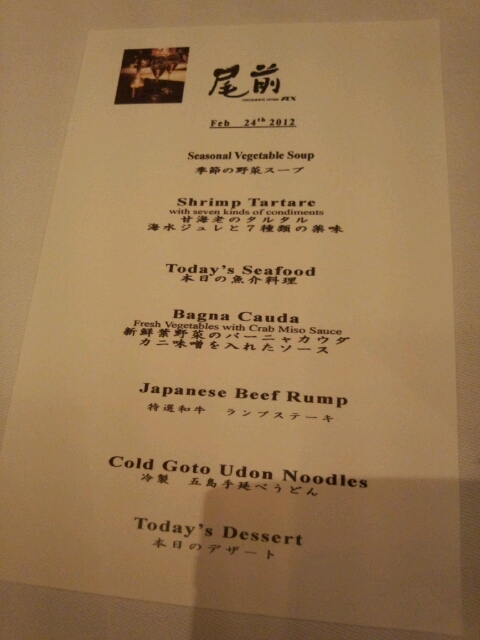 尾前
Feb 24th 2012
Seasonal Vegetable Soup
季節の野菜スープ
Shrimp Tartare
with seven kinds of condiments
甘海老のタルタル
海水ジュレと７種類の薬味
Today's Seafood
本日の魚介料理
Bagna Cauda
Fresh Vegetables with Crab Miso Sauce
新鮮葉野菜のバーニャカウダ
カニ味噌を入れたソース
Japanese Beef Rump
特選和牛　ランプステーキ
Cold Goto Udon Noodles
冷製　五島手延べうどん
Today's Dessert
本日のデザート